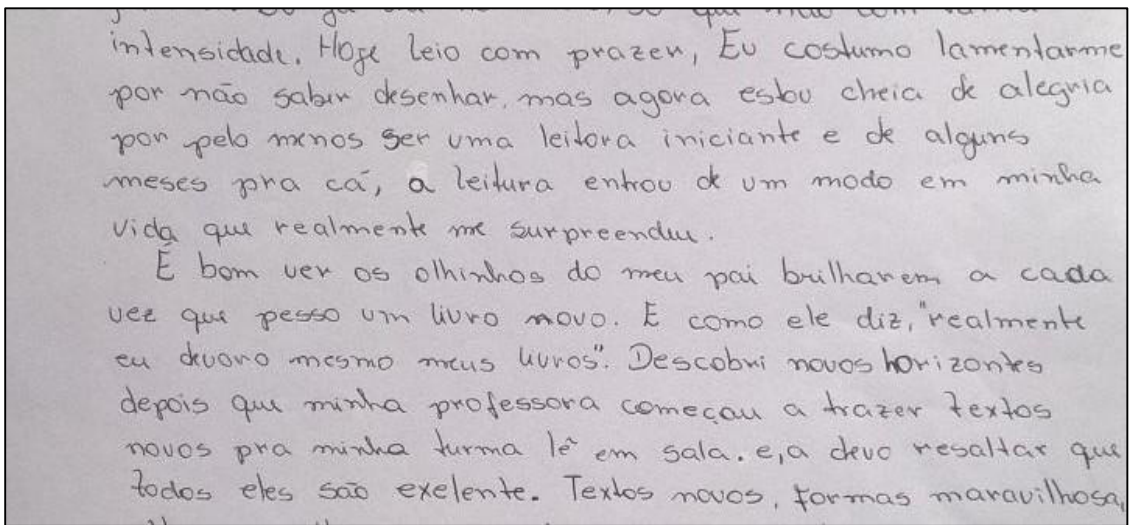 intensidade. Hoje leio com prazer, Eu costumo lamentarme
por não saber desenhar, mas agora estou cheia de alegria
por pelo menos ser uma leitora iniciante e de alguns
meses pra cá, a leitura entrou de um modo em minha
vida que realmente me surpreendeu.
É bom ver os olhinhos do meu pai brilharem a cada
vez que pesso um livro novo. E como ele diz, "realmente
eu devoro mesmo meus livros". Descobri novos horizontes
depois que minha professora começou a trazer textos
novos pra minha turma lê em sala. e, a devo resaltar que
todos eles são exelente. Textos novos, formas maravilhosa,